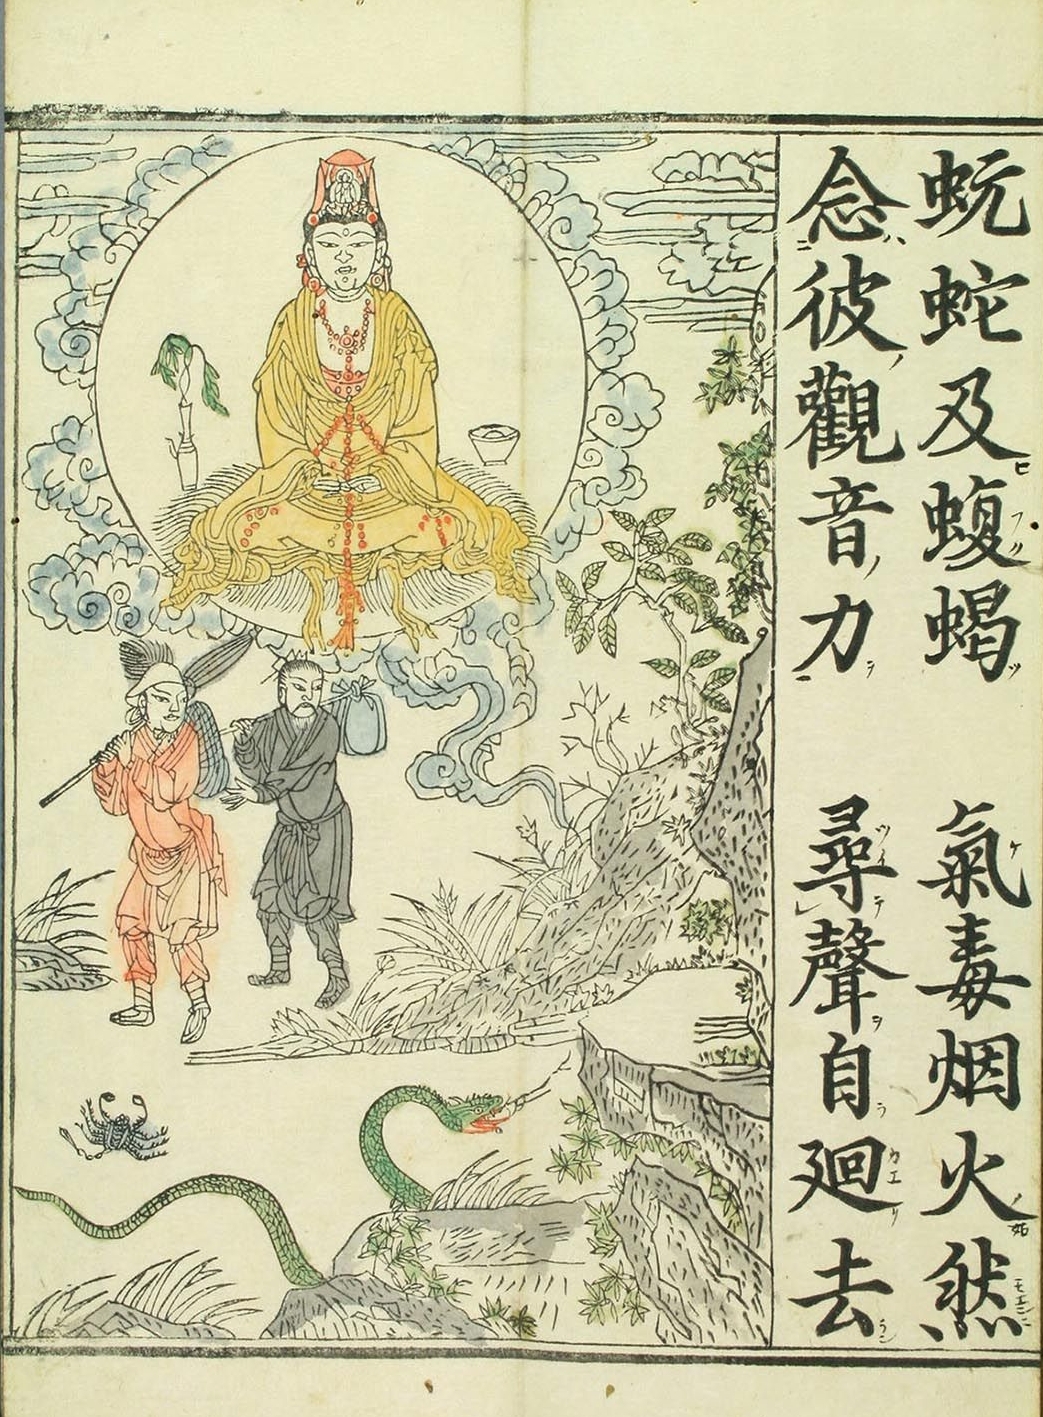 蚖蛇及蝮蝎　氣毒烟火然
念彼觀音力　尋聲自廻去